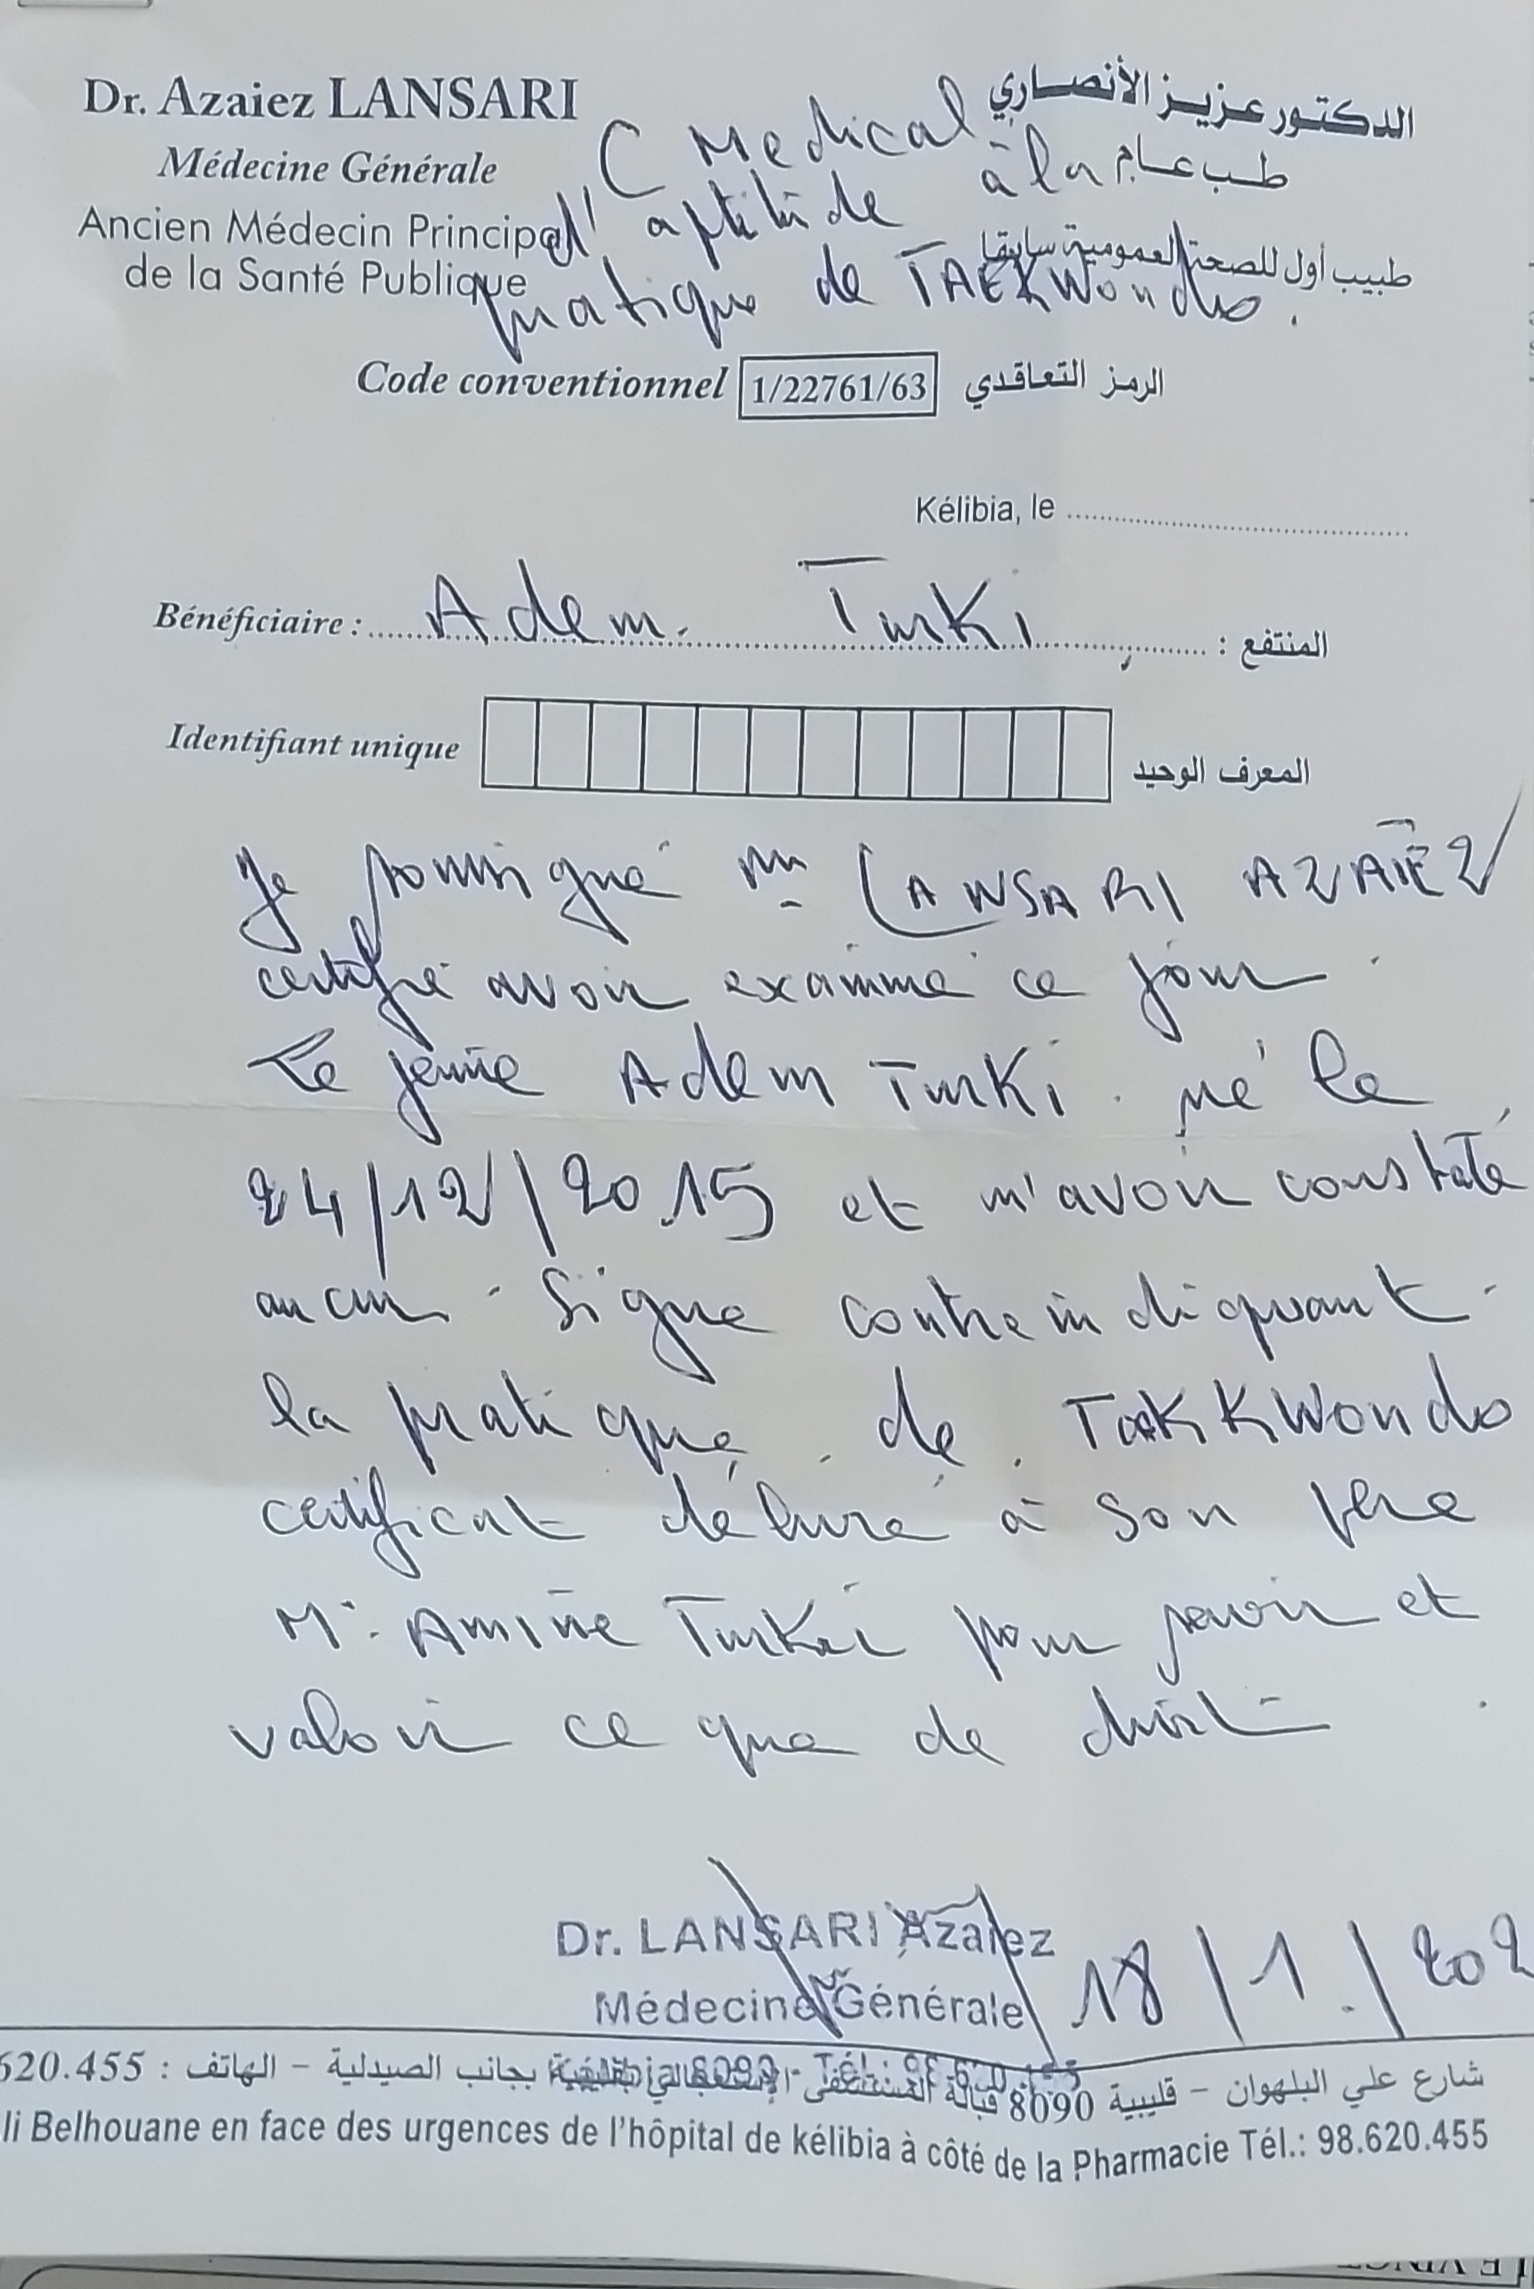 Dr. Azaiez LANSARI
Médecine Générale
Ancien Médecin Principal
de la Santé Publique
الدكتور عزيز الأنصاري
طب عام
طبيب أول للصحة العمومية سابقا
C Medical
d'aptitude à la
pratique de TAEKWondo.
Code conventionnel 1/22761/63 الرمز التعاقدي
Kélibia, le
Bénéficiaire : Adem Turki المنتفع :
Identifiant unique المعرف الوحيد
Je soussigné LANSARI AZAIEZ
certifie avoir examiné ce jour
Le jeune Adem Turki né le
24/12/2015 et n'avoir constaté
aucun signe contreindiquant
la pratique de TaekKWondo
certificat délivré à son père
Mr Amine Turki pour servir et
valoir ce que de droit
Dr. LANSARI Azaiez
Médecine Générale
18/1/202
شارع علي البلهوان - قليبية 8090 قبالة المستشفى بجانب الصيدلية - الهاتف : 620.455
li Belhouane en face des urgences de l'hôpital de kélibia à côté de la Pharmacie Tél.: 98.620.455